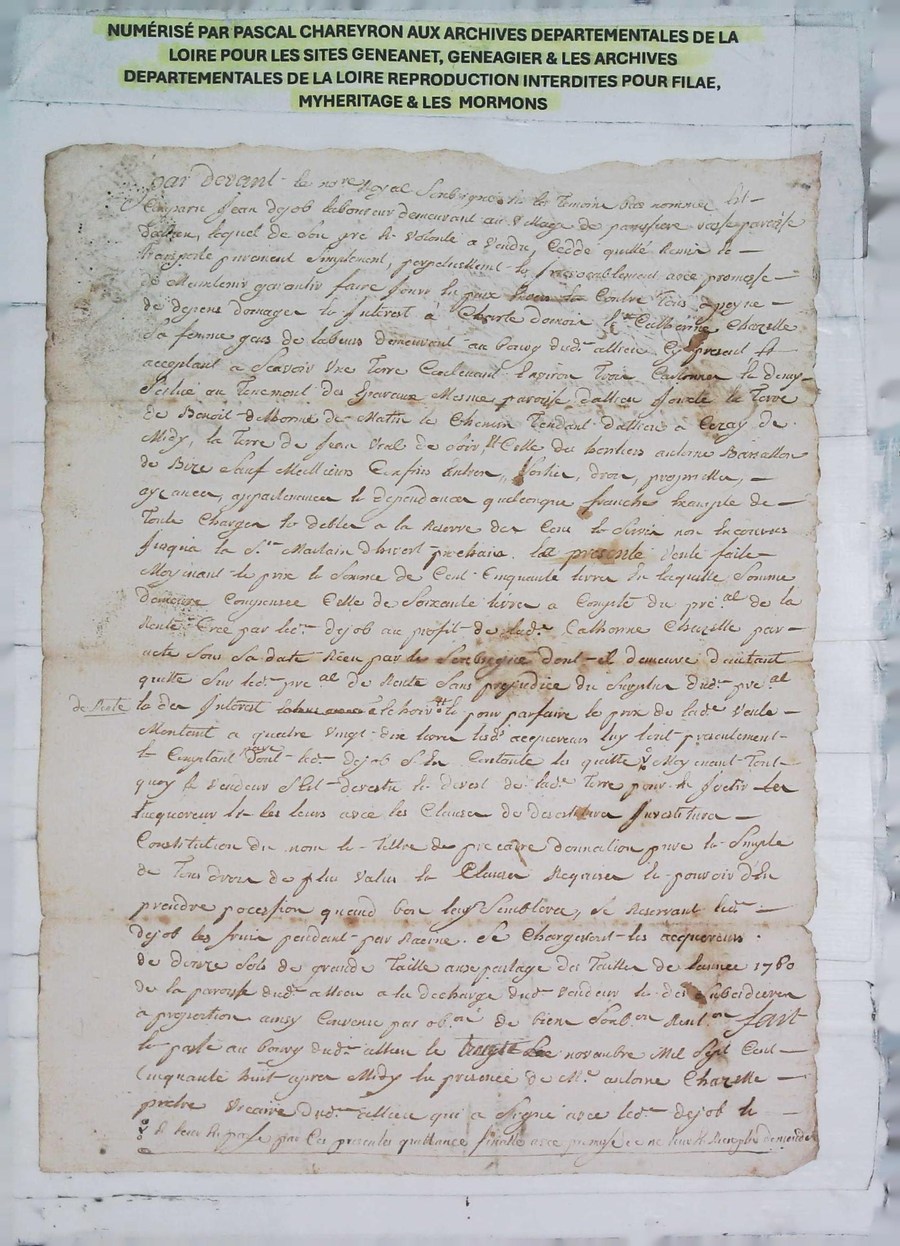 NUMÉRISÉ PAR PASCAL CHAREYRON AUX ARCHIVES DEPARTEMENTALES DE LA
LOIRE POUR LES SITES GENEANET, GENEAGIER & LES ARCHIVES
DEPARTEMENTALES DE LA LOIRE REPRODUCTION INTERDITES POUR FILAE,
MYHERITAGE & LES MORMONS
par devant le no.re Royal Soubsigné et les Temoins bas nommés fut
Comparu Jean dejob laboureur demeurant au Village de paroisse
laquel de son gré et Volonté a Vendu, Ceddé quitté Remis et
transporté purement simplement, perpetuellement et Irrevocablement avec promesse
de Maintenir garantir faire jouir Contre Tous a peyne
de depens domages et Interest à Catherine Chazelle
Sa femme gens de labeurs demeurant au bourg dud. allieu Cy present et
acceptant a Scavoir Une Terre Contenant Environ Trois Cartonnes et demy
Scitué au Tenement des Gravoux Mesme paroisse dallieu Joingt la Terre
de Benoit de Matin le Chemin Tendant dallieu a Cezay de
Midy, la Terre de Jean Vial de soir, et Celle des heritiers antoine Barzallon
de Bize Sauf Meilleurs Confins Entrée, Sortie, droits, proprietés,
aysances, appartenances et dependances quelconques franche Exempte de
Toute Charges et debtes a la Reserve des Cens et Servis non Encourus
Jusqua la St. Martain dhivert prochain. La presente Vente faite
Moyenant le prix et Somme de Cent Cinquante livres En laquelle Somme
demeure Compensée Celle de Soixante livres a Compte du pre.al de la
Rente Créé par led. dejob au profit de lad. Catherine Chazelle par
acte Sous Sa date Receu par le Soubsigné dont il demeure dautant
quitte Sur led. pre.al de Rente Sans prejudice du Surplus dud. pre.al
de Reste et des Interest Echoir et pour parfaire le prix de lad. Vente
Montant a quatre Vingt dix livres lesd. acquereurs luy ont presentement
et Comptant payé dont led. dejob S'En Contente les quitte Moyenant Tout
quoy le Vendeur S'Est devestu et devest de lad. Terre pour En Investir les
acquereurs Et les leurs avec les Clauses de devestiture Investiture
Constitution du nom et Tiltre de precaire donnation pure et Simple
de Tous droits de plus Value et Clauses Requises et pouvoir d'En
prendre pocession quand bon leur Semblera, Se Reservant led.
dejob les fruis pendant par Racine. Se Chargeront les acquereurs
de douze Sols de grande Taille au departage des Tailles de lannée 1760
de la paroisse dud. allieu a la decharge dud. Vendeur et des Subcideres
a proportion ainsy Convenu par ob.on de biens Soub.on Rent.on fait
et passé au bourg dud. allieu le novembre Mil Sept Cent
Cinquante huit apres Midy En presence de M.e antoine Chazelle
prêtre Vicaire dud. allieu qui a Signé avec led. dejob et
passe par Ces presentes quittance finale avec promesse de ne leur Rien plus demander